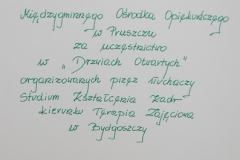 Międzygminnego Ośrodka Opiekuńczego
w Pruszczu
za uczestnictwo
w „Drzwiach Otwartych"
organizowanych przez słuchaczy
Studium Kształcenia Kadr
kierunek Terapia Zajęciowa
w Bydgoszczy